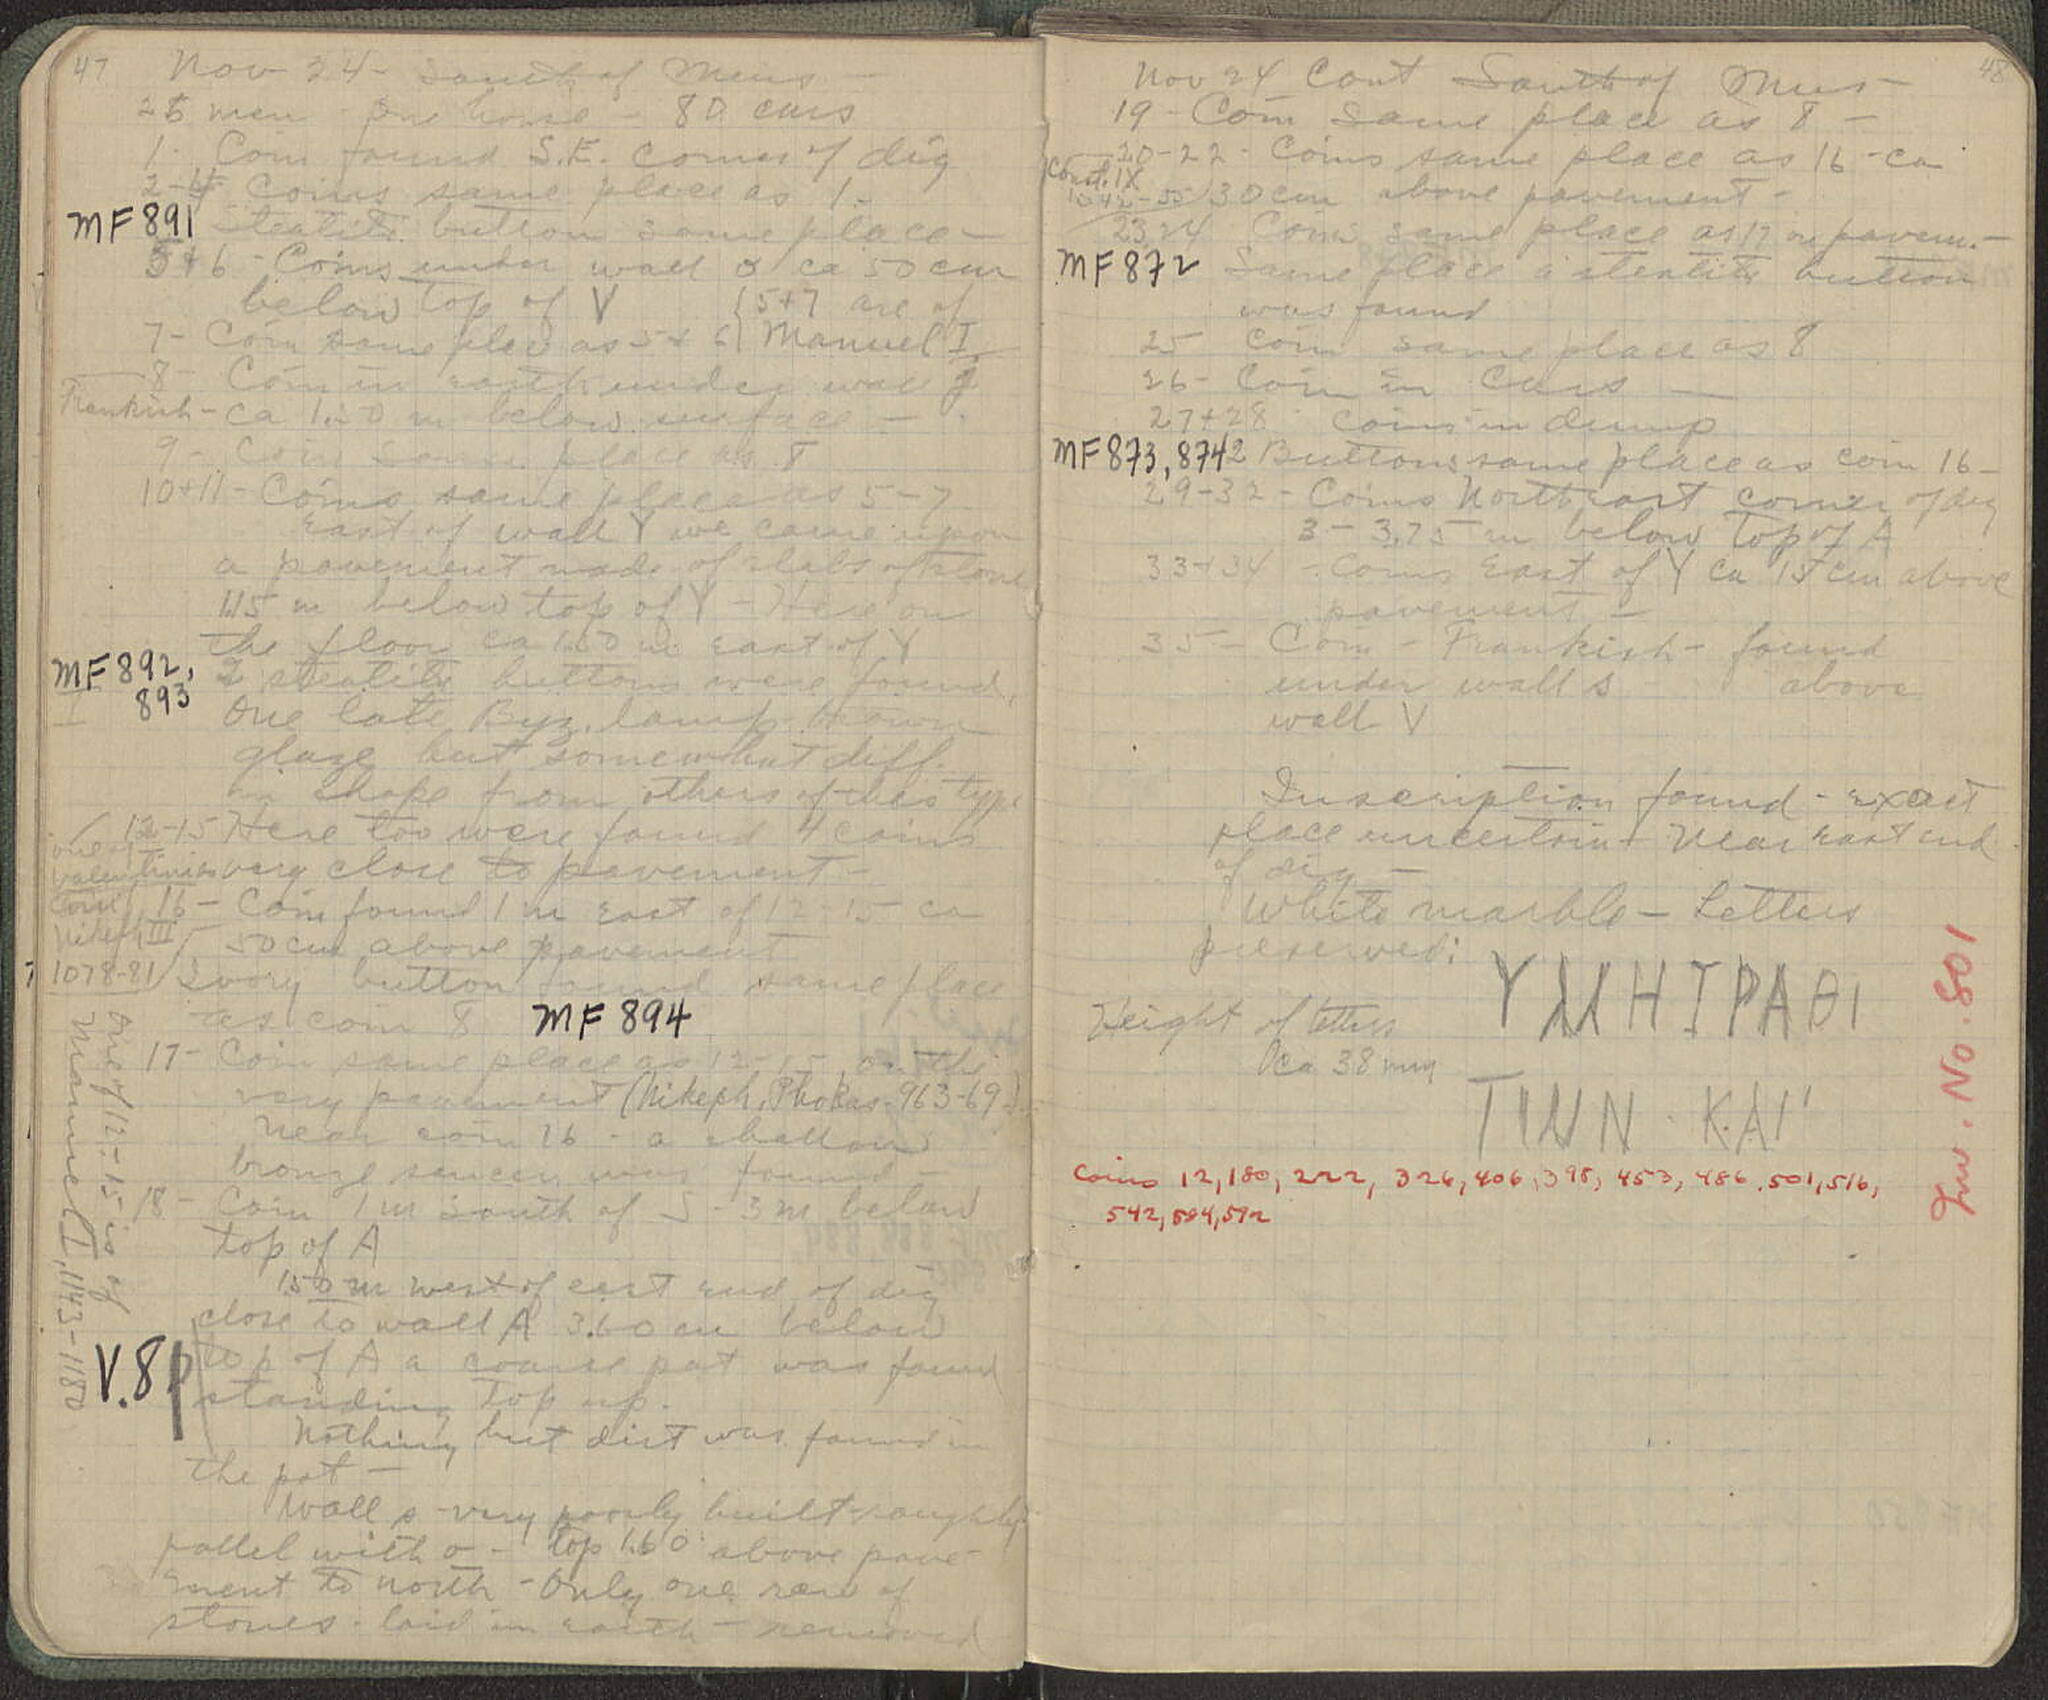 47 Nov 24 - South of Mus -
25 men - one horse - 80 cars
1 - Coin found S.E. corner of dig
2-4 Coins same place as 1.
MF 891 Steatite button same place -
5+6 - Coins under wall σ ca 50 cm
below top of V {5+7 are of
7 - Coin same place as 5+6 { Manuel I
8 - Coin in earth under wall
Frankish - ca 1.20 m below surface -
9 - Coin same place as 8
10+11 - Coins same place as 5-7
East of wall Y we came upon
a pavement made of slabs of stone
1.15 m below top of Y - Here on
the floor ca 1.50 m east of Y
MF 892, 2 steatite buttons were found.
893 One late Byz. lamp brown
glaze but somewhat diff.
in shape from others of this type
12-15 Here too were found 4 coins
one of Valentinian very close to pavement -
Coin of 16 - Coin found 1 m East of 12-15 ca
Nikeph III 50 cm above pavement
1078-81 Ivory button found same place
as coin 8 MF 894
17 - Coin same place as 12-15 on the
very pavement (Nikeph. Phokas - 963-69)
Near coin 16 - a shallow
bronze saucer was found -
18 - Coin 1 m South of S - 3 m below
top of A
1.50 m west of east end of dig
close to wall A 3.60 m below
V.81 top of A a coarse pot was found
standing top up.
Nothing but dirt was found in
the pot -
Wall s - very poorly built - roughly
pallel with σ - top 1.60 above pave-
ment to north - Only one row of
stones - laid in earth - removed
One of 12-15 is of
Manuel I, 1143-1180
48
Nov 24 Cont South of Mus -
19 - Coin same place as 8 -
20-22 - Coins same place as 16 - ca
Const. IX
1042-55 30 cm above pavement -
23+24 Coins same place as 17 on pavem. -
MF 872 Same place a steatite button
was found
25 Coin same place as 8
26 - Coin in Cars -
27+28 coins in dump
MF 873, 874 2 Buttons same place as coin 16 -
29-32 - Coins Northeast corner of dig
3 - 3.75 m below top of A
33+34 - Coins East of Y ca 15 cm above
pavement -
35 - Coin - Frankish - found
under wall s above
wall V
Inscription found - exact
place uncertain - Near east end
of dig -
White marble - Letters
preserved:
ΥΜΗΤΡΑΘΙ
Height of letters
ca 38 mm
ΤΙΩΝ · ΚΑΙ
Inv. No. 801
Coins 12, 180, 222, 326, 406, 398, 453, 486, 501, 516,
542, 584, 592